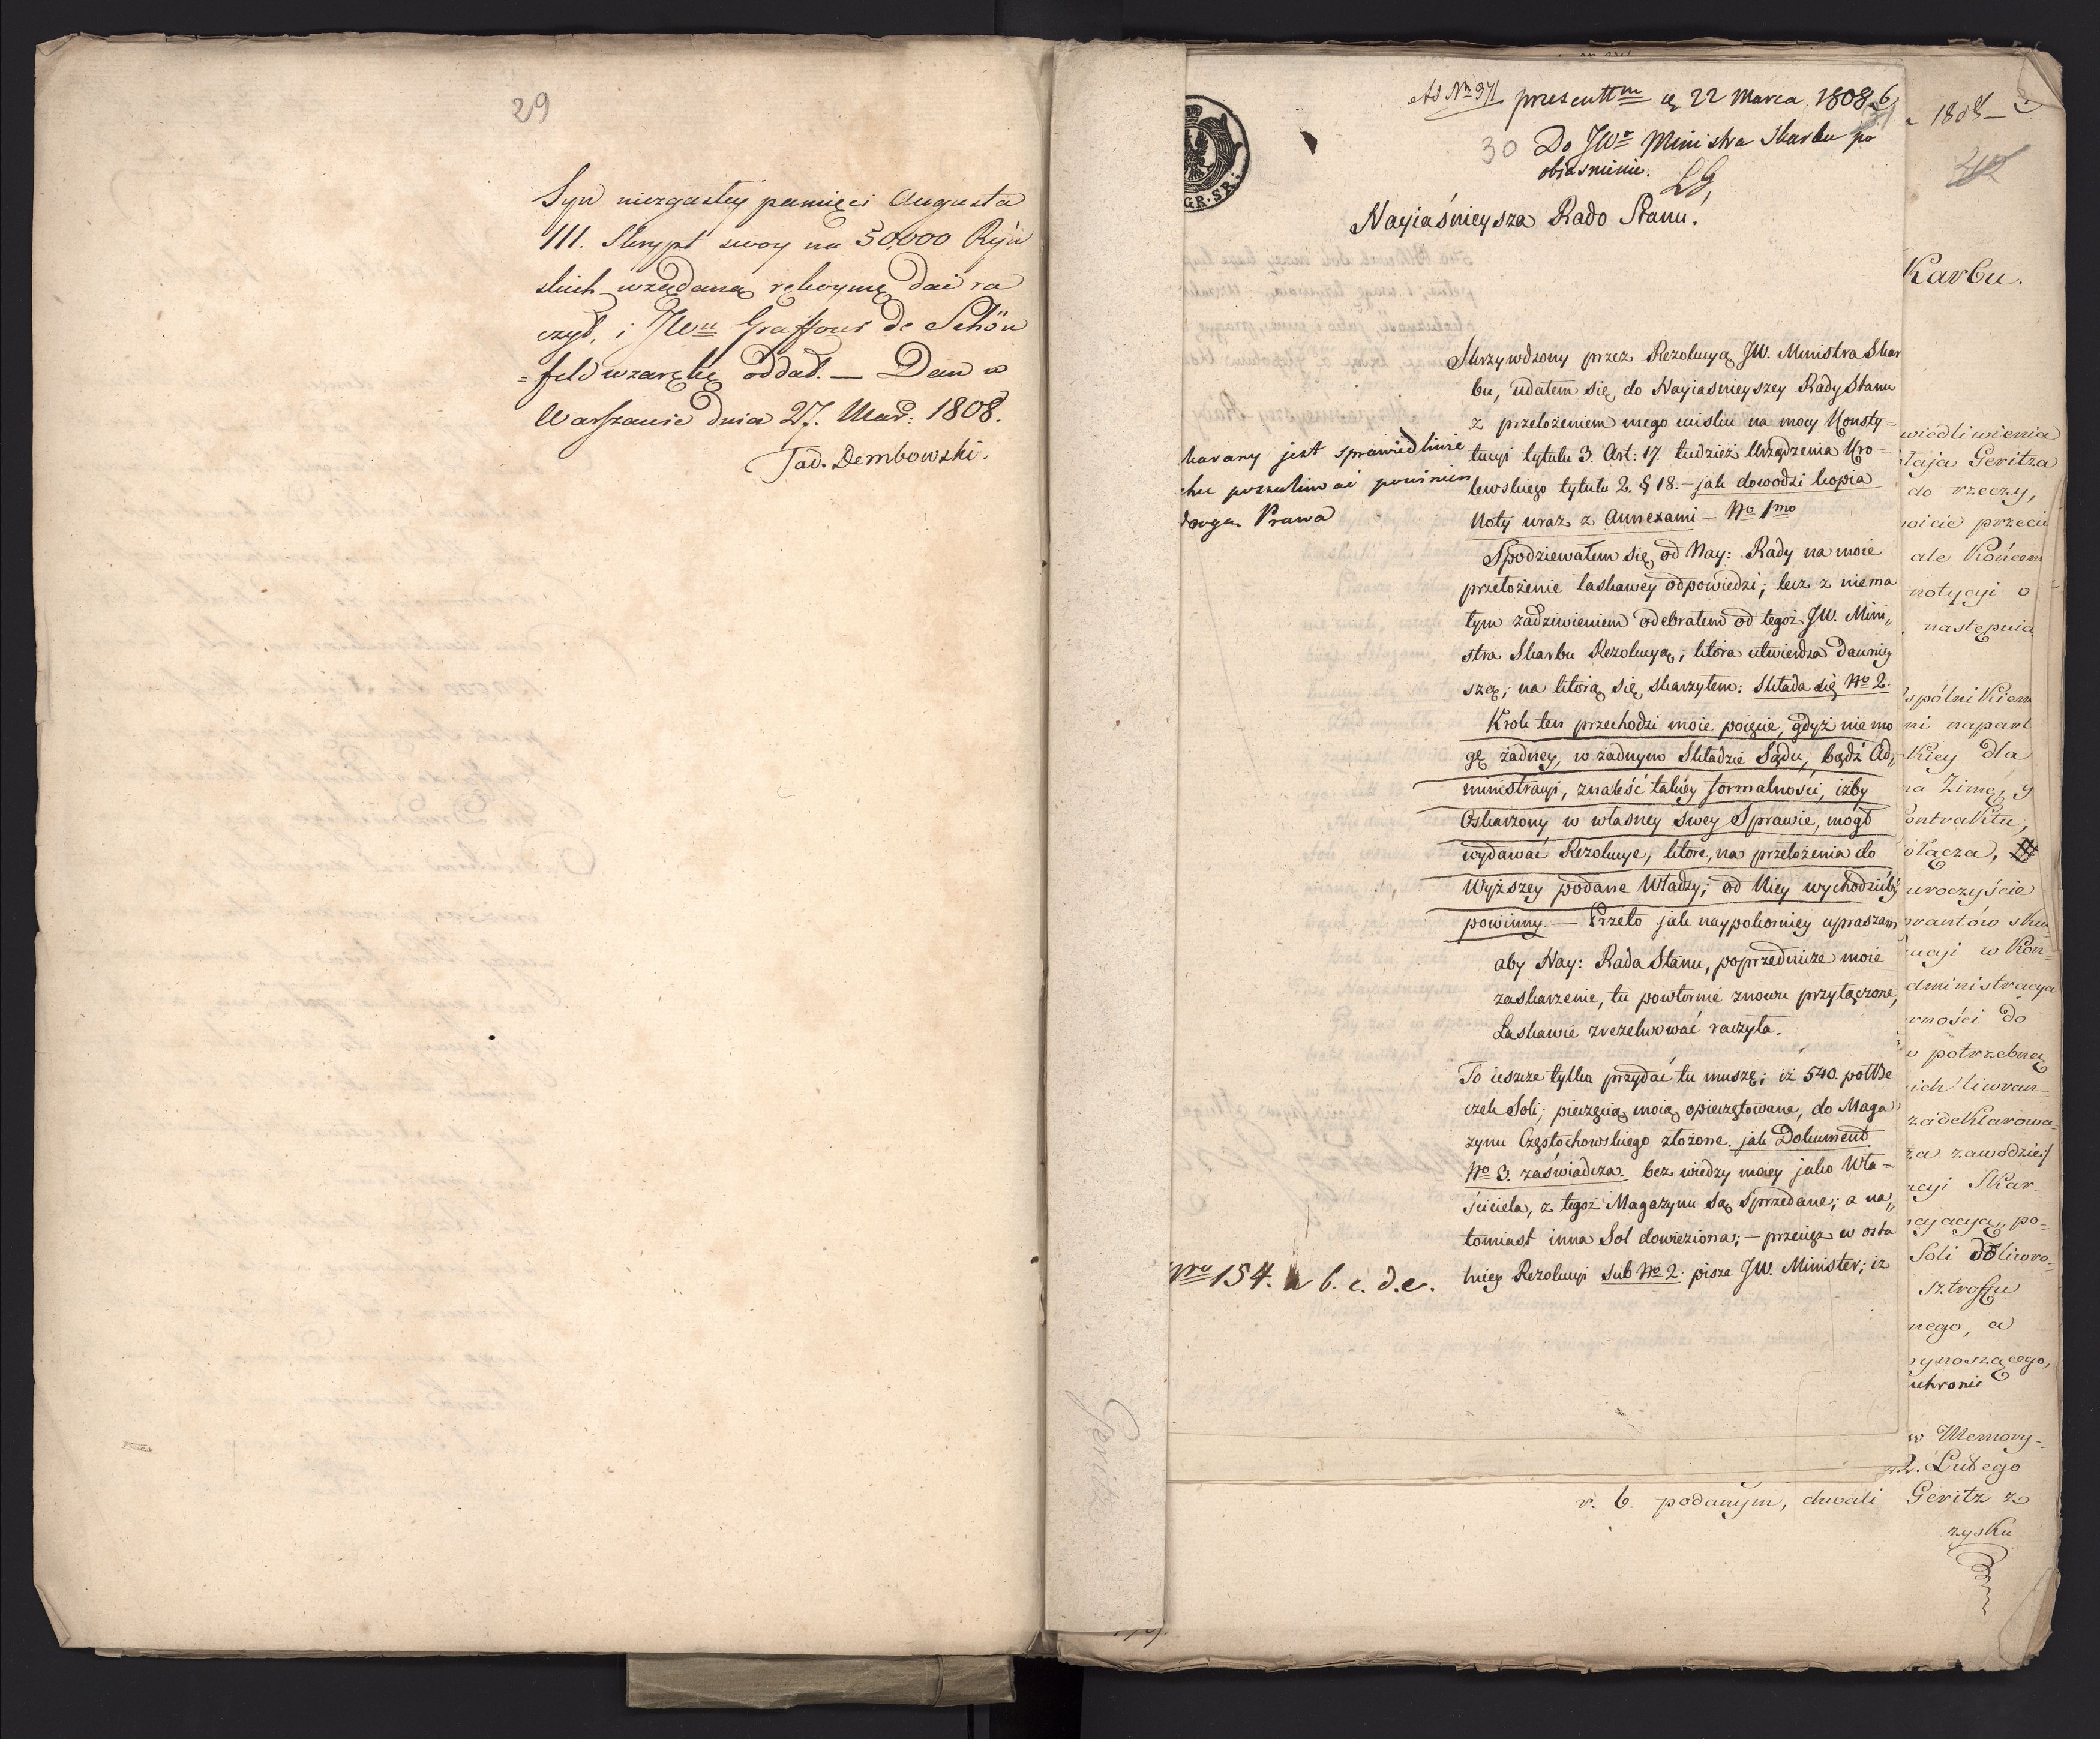 29
Syn niezgasłey pamięci Augusta
III. Skrypt swoy na 50,000 Ryń
skich wzędaną rękoymę dai ra
czył, i JWu Graffowi de Schön
=feld wzarękę oddał. — Dan w
Warszawie dnia 27. Mar: 1808.
Tad. Dembowski.
Ad No 371 presentm d. 22 Marca 1808
30 Do JWo Ministra Skarbu po
obiasnienie.
GR·SR·
Nayiaśnieysza Rado Stanu!
Skrzywdzony przez Rezolucyą JW. Ministra Skar
bu, udałem się do Nayiaśnieyszey Rady Stanu
z przełożeniem mego ucisku na mocy Konsty=
tucyi tytułu 3. Art: 17. tudzież Urządzenia Kro=
lewskiego tytułu 2. § 18. — jak dowodzi kopia
Noty wraz z Annexami — No 1mo
karany jest sprawiedliwie
poszukiwać powinien
droga Prawa
Spodziewałem się od Nay: Rady na moie
przełożenie łaskawey odpowiedzi; lecz z niema
łym zadziwieniem odebrałem od tegoż JW. Mini„
stra Skarbu Rezolucyą; która utwierdza dawniey
szą, na którą się skarzyłem: składa się No 2.
Krok ten przechodzi moie poięcie, gdyż nie mo
gę żadney, w żadnym Składzie Sądu, bądź Ad„
ministracyi, znaleść takiey formalności, iżby
Oskarzony w własney swey Sprawie, mógł
wydawać Rezolucye, które, na przełożenia do
Wyższey podane Władzy; od Niey wychodziéby
powinny. — Przeto jak naypokorniey upraszam
aby Nay: Rada Stanu, poprzednicze moie
zaskarzenie, tu powtornie znowu przyłączone,
Łaskawie zrezolwować raczyła.
To ieszcze tylko przydać tu muszę; iż 540. połbe
czek Soli; pieczęcią moią opieczętowane, do Maga
zynu Częstochowskiego złożone. jak Dokument
No 3. zaświadcza bez wiedzy moiey jako Wła=
ściciela, z tegoż Magazynu są sprzedane; a na„
tomiast inna Sol dowieziona; — przecięż w osta
tniey Rezolucyi sub No 2. pisze JW. Minister; iż
Nro 154. a b. c. d. e.
Geritz
1808
Karbu.
wiedliwienia
łaja Geritza
do rzeczy,
oicie przeciw
ale Końcem
notycyi o
następnia
spólnikiem
ni napart
Kiey dla
na Zimę, y
ontraktu,
ołącza,
uroczyście
rantów sku
ucyi w Kon=
dministracya
ności do
potrzebną
ich liwran=
zadeklarowa=
za zawodzie
cyi Skar=
cyacyą, po=
Soli doliwro=
sztroffu
nego, a
ynoszącego,
uchronić
w Memory=
2. Lutego
r. b. podanym, chwali Geritz z
zysku